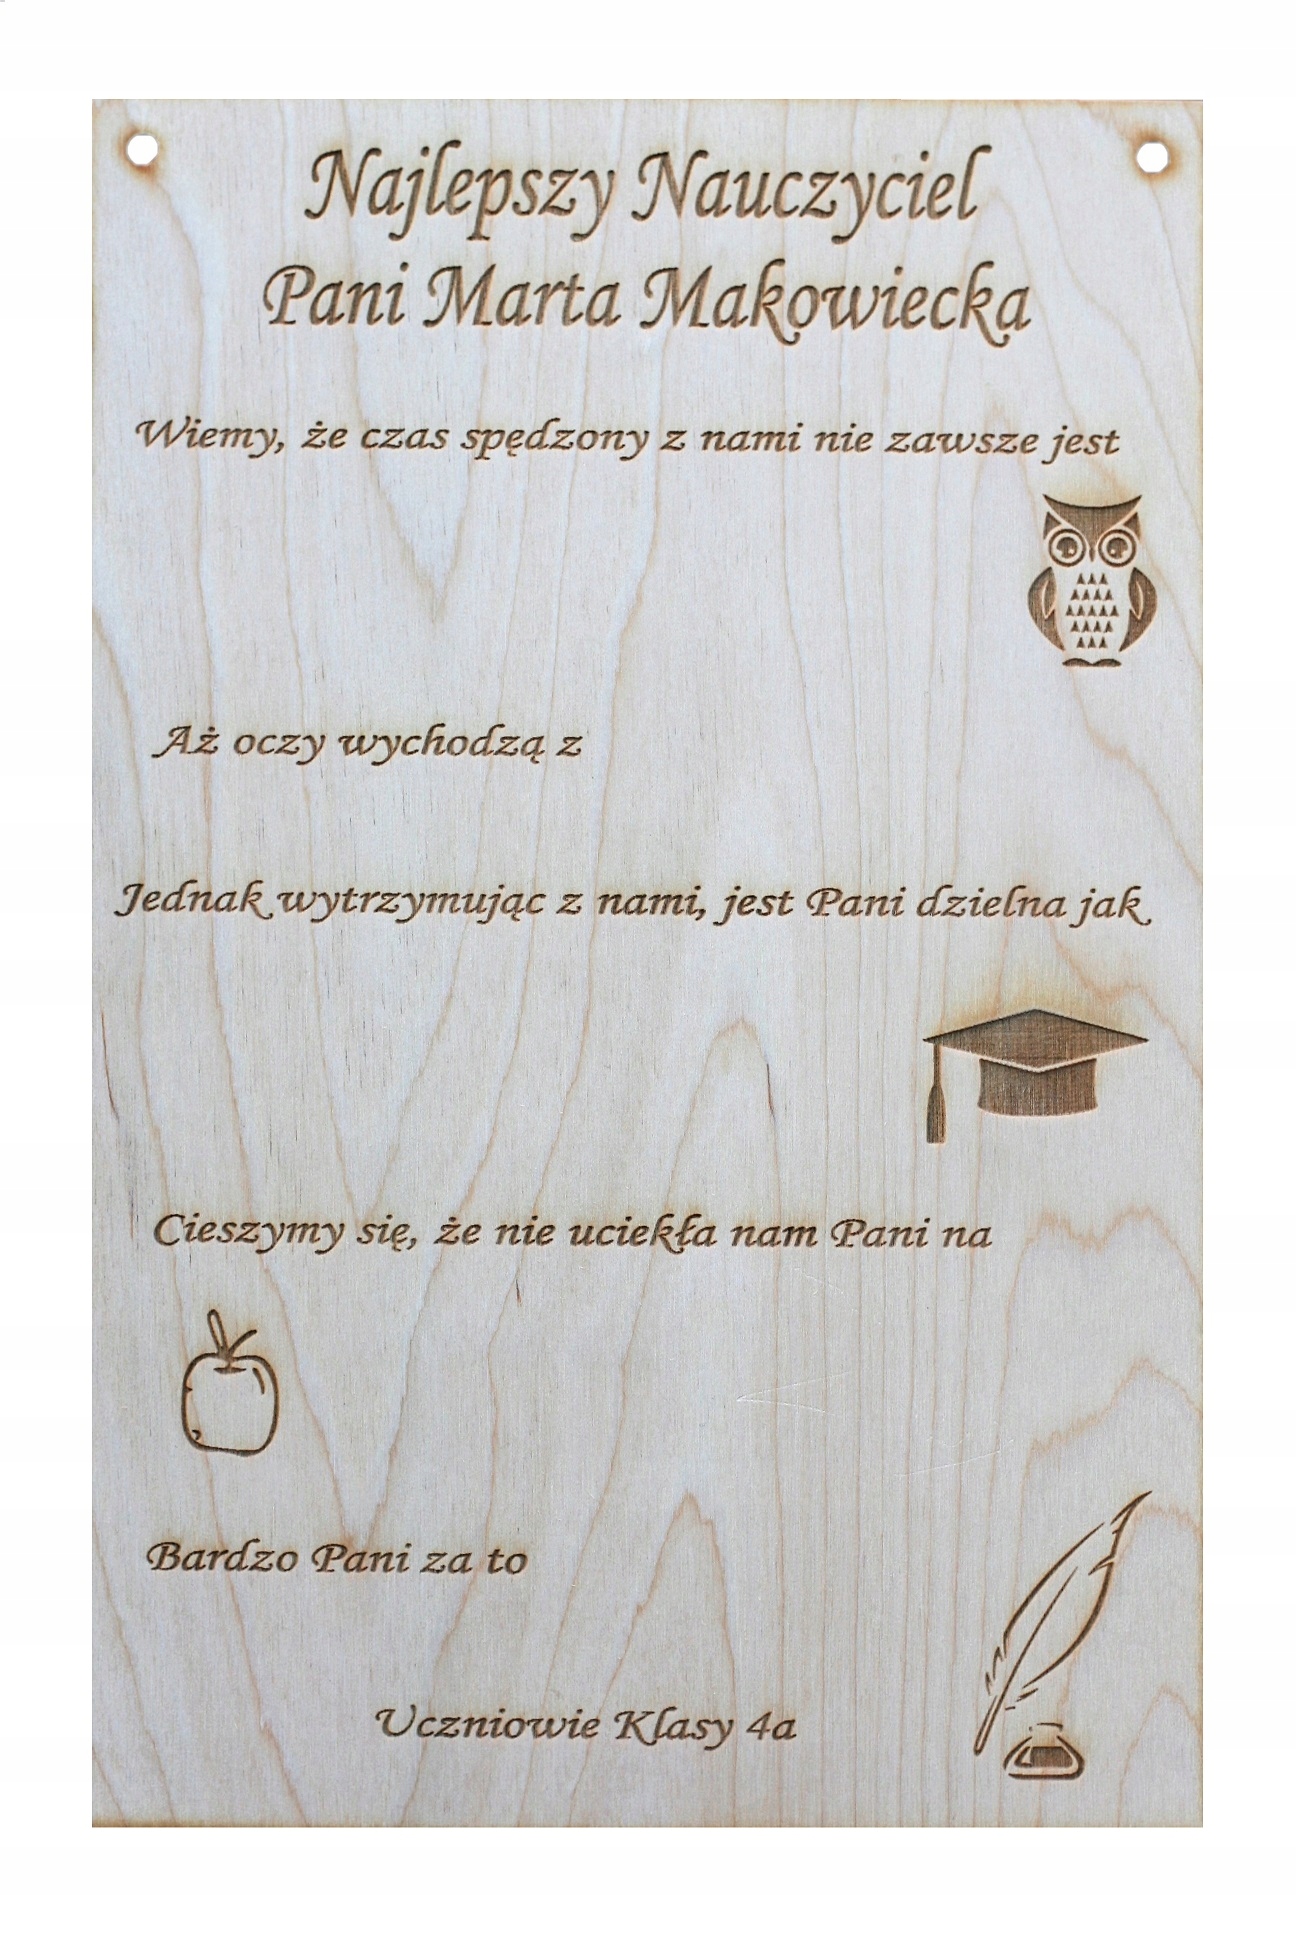 Najlepszy Nauczyciel
Pani Marta Makowiecka
Wiemy, że czas spędzony z nami nie zawsze jest
Aż oczy wychodzą z
Jednak wytrzymując z nami, jest Pani dzielna jak
Cieszymy się, że nie uciekła nam Pani na
Bardzo Pani za to
Uczniowie Klasy 4a